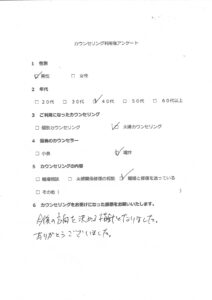 カウンセリング利用後アンケート
1 性別
☑ 男性 □ 女性
2 年代
□ 20代 □ 30代 ☑ 40代 □ 50代 □ 60代以上
3 ご利用になったカウンセリング
□ 個別カウンセリング ☑ 夫婦カウンセリング
4 担当のカウンセラー
□ 小泉 ☑ 堀作
5 カウンセリングの内容
□ 離婚相談 □ 夫婦関係修復の相談 ☑ 離婚と修復を迷っている
□ その他( )
6 カウンセリングをお受けになった感想をお願いいたします。
今後の方向を決める手助けとなりました。
ありがとうございました。